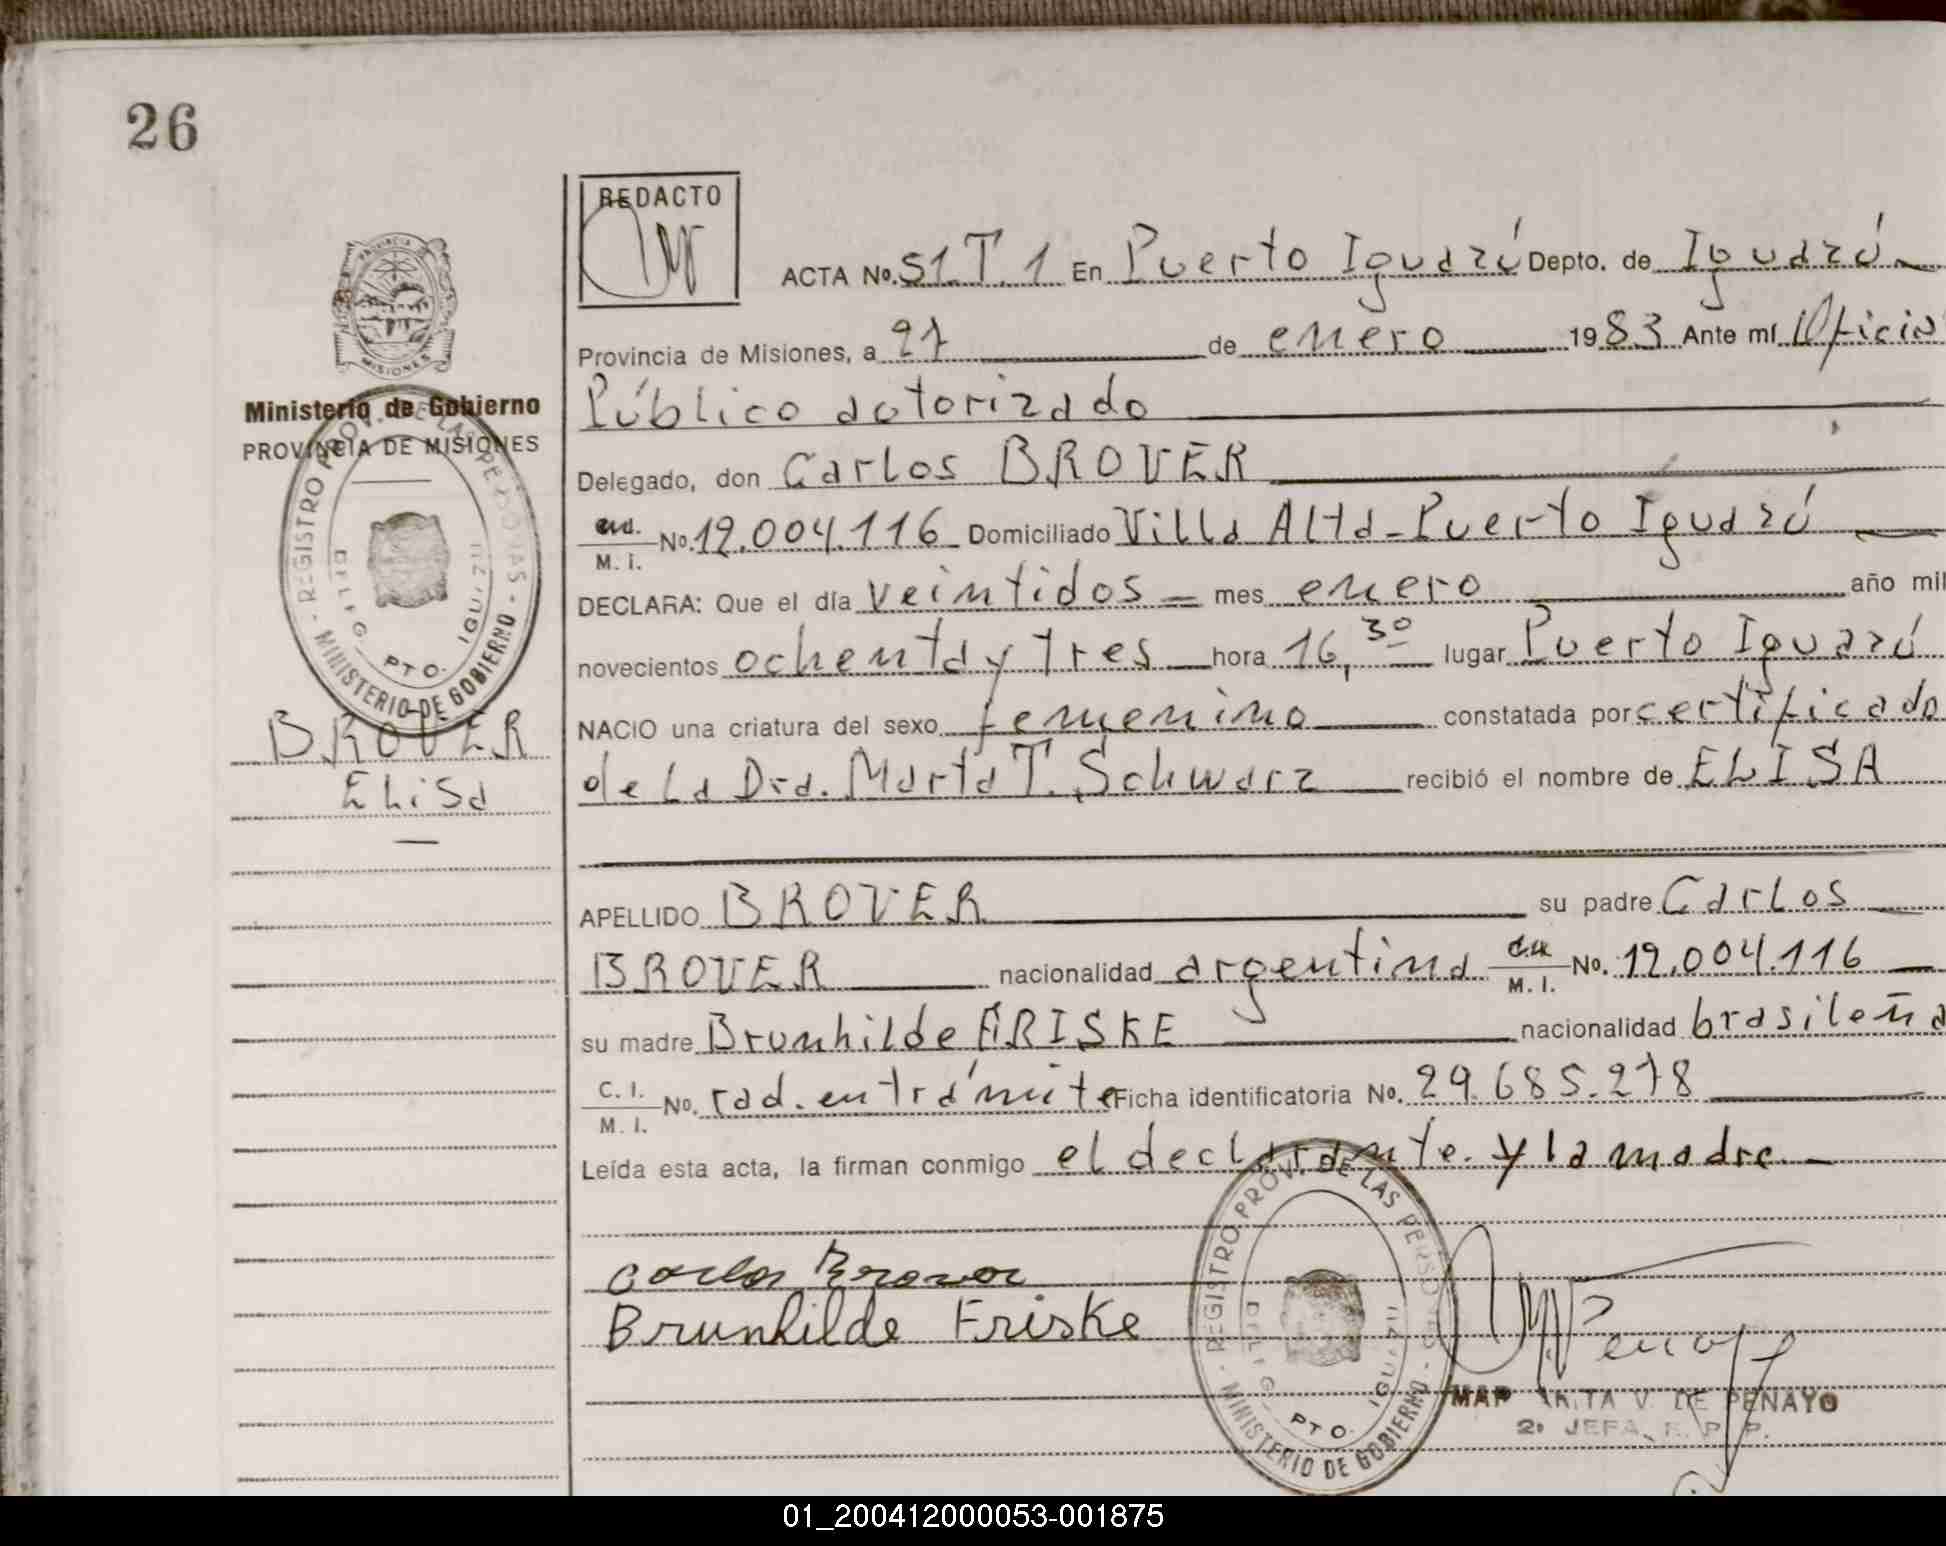 26
REDACTO
PROVINCIA DE
MISIONES
ACTA No. 51 T. 1 En Puerto Iguazú Depto. de Iguazú
Provincia de Misiones, a 27 de enero 1983 Ante mí Oficial
Ministerio de Gobierno
PROVINCIA DE MISIONES
Público autorizado
Delegado, don Carlos BROVER
M. I. No. 12.004.116 Domiciliado Villa Alta - Puerto Iguazú
DECLARA: Que el día veintidos mes enero año mil
novecientos ochenta y tres hora 16,30 lugar Puerto Iguazú
NACIO una criatura del sexo femenino constatada por certificado
de La Dra. Marta T. Schwarz recibió el nombre de ELISA
REGISTRO PROV. DE LAS PERSONAS - MINISTERIO DE GOBIERNO
DELEG. PTO. IGUAZU
BROVER
ELisa
APELLIDO BROVER su padre Carlos
BROVER nacionalidad argentina M. I. No. 12.004.116
su madre Brunhilde FRISKE nacionalidad brasileña
C. I. M. I. No. rad. en trámite Ficha identificatoria No. 29.685.278
Leída esta acta, la firman conmigo el declarante. y la madre.
Carlos Brover
Brunhilde Friske
REGISTRO PROV. DE LAS PERSONAS - MINISTERIO DE GOBIERNO
DELEG. PTO. IGUAZU
V. DE PENAYO
2º JEFA R. P. P.
01_200412000053-001875